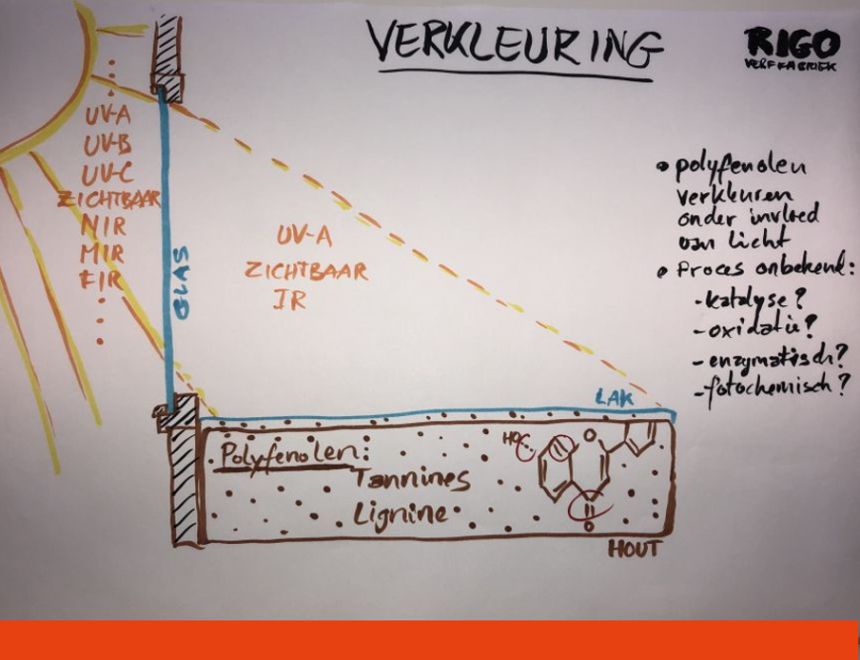 VERKLEURING
RIGO
VERFFABRIEK
UV-A
UV-B
UV-C
ZICHTBAAR
NIR
MIR
FIR
GLAS
UV-A
ZICHTBAAR
IR
• polyfenolen
verkleuren
onder invloed
van licht
• Proces onbekend:
-katalyse?
-oxidatie?
-enzymatisch?
-fotochemisch?
LAK
Polyfenolen:
Tannines
Lignine
HO
O
O
HOUT